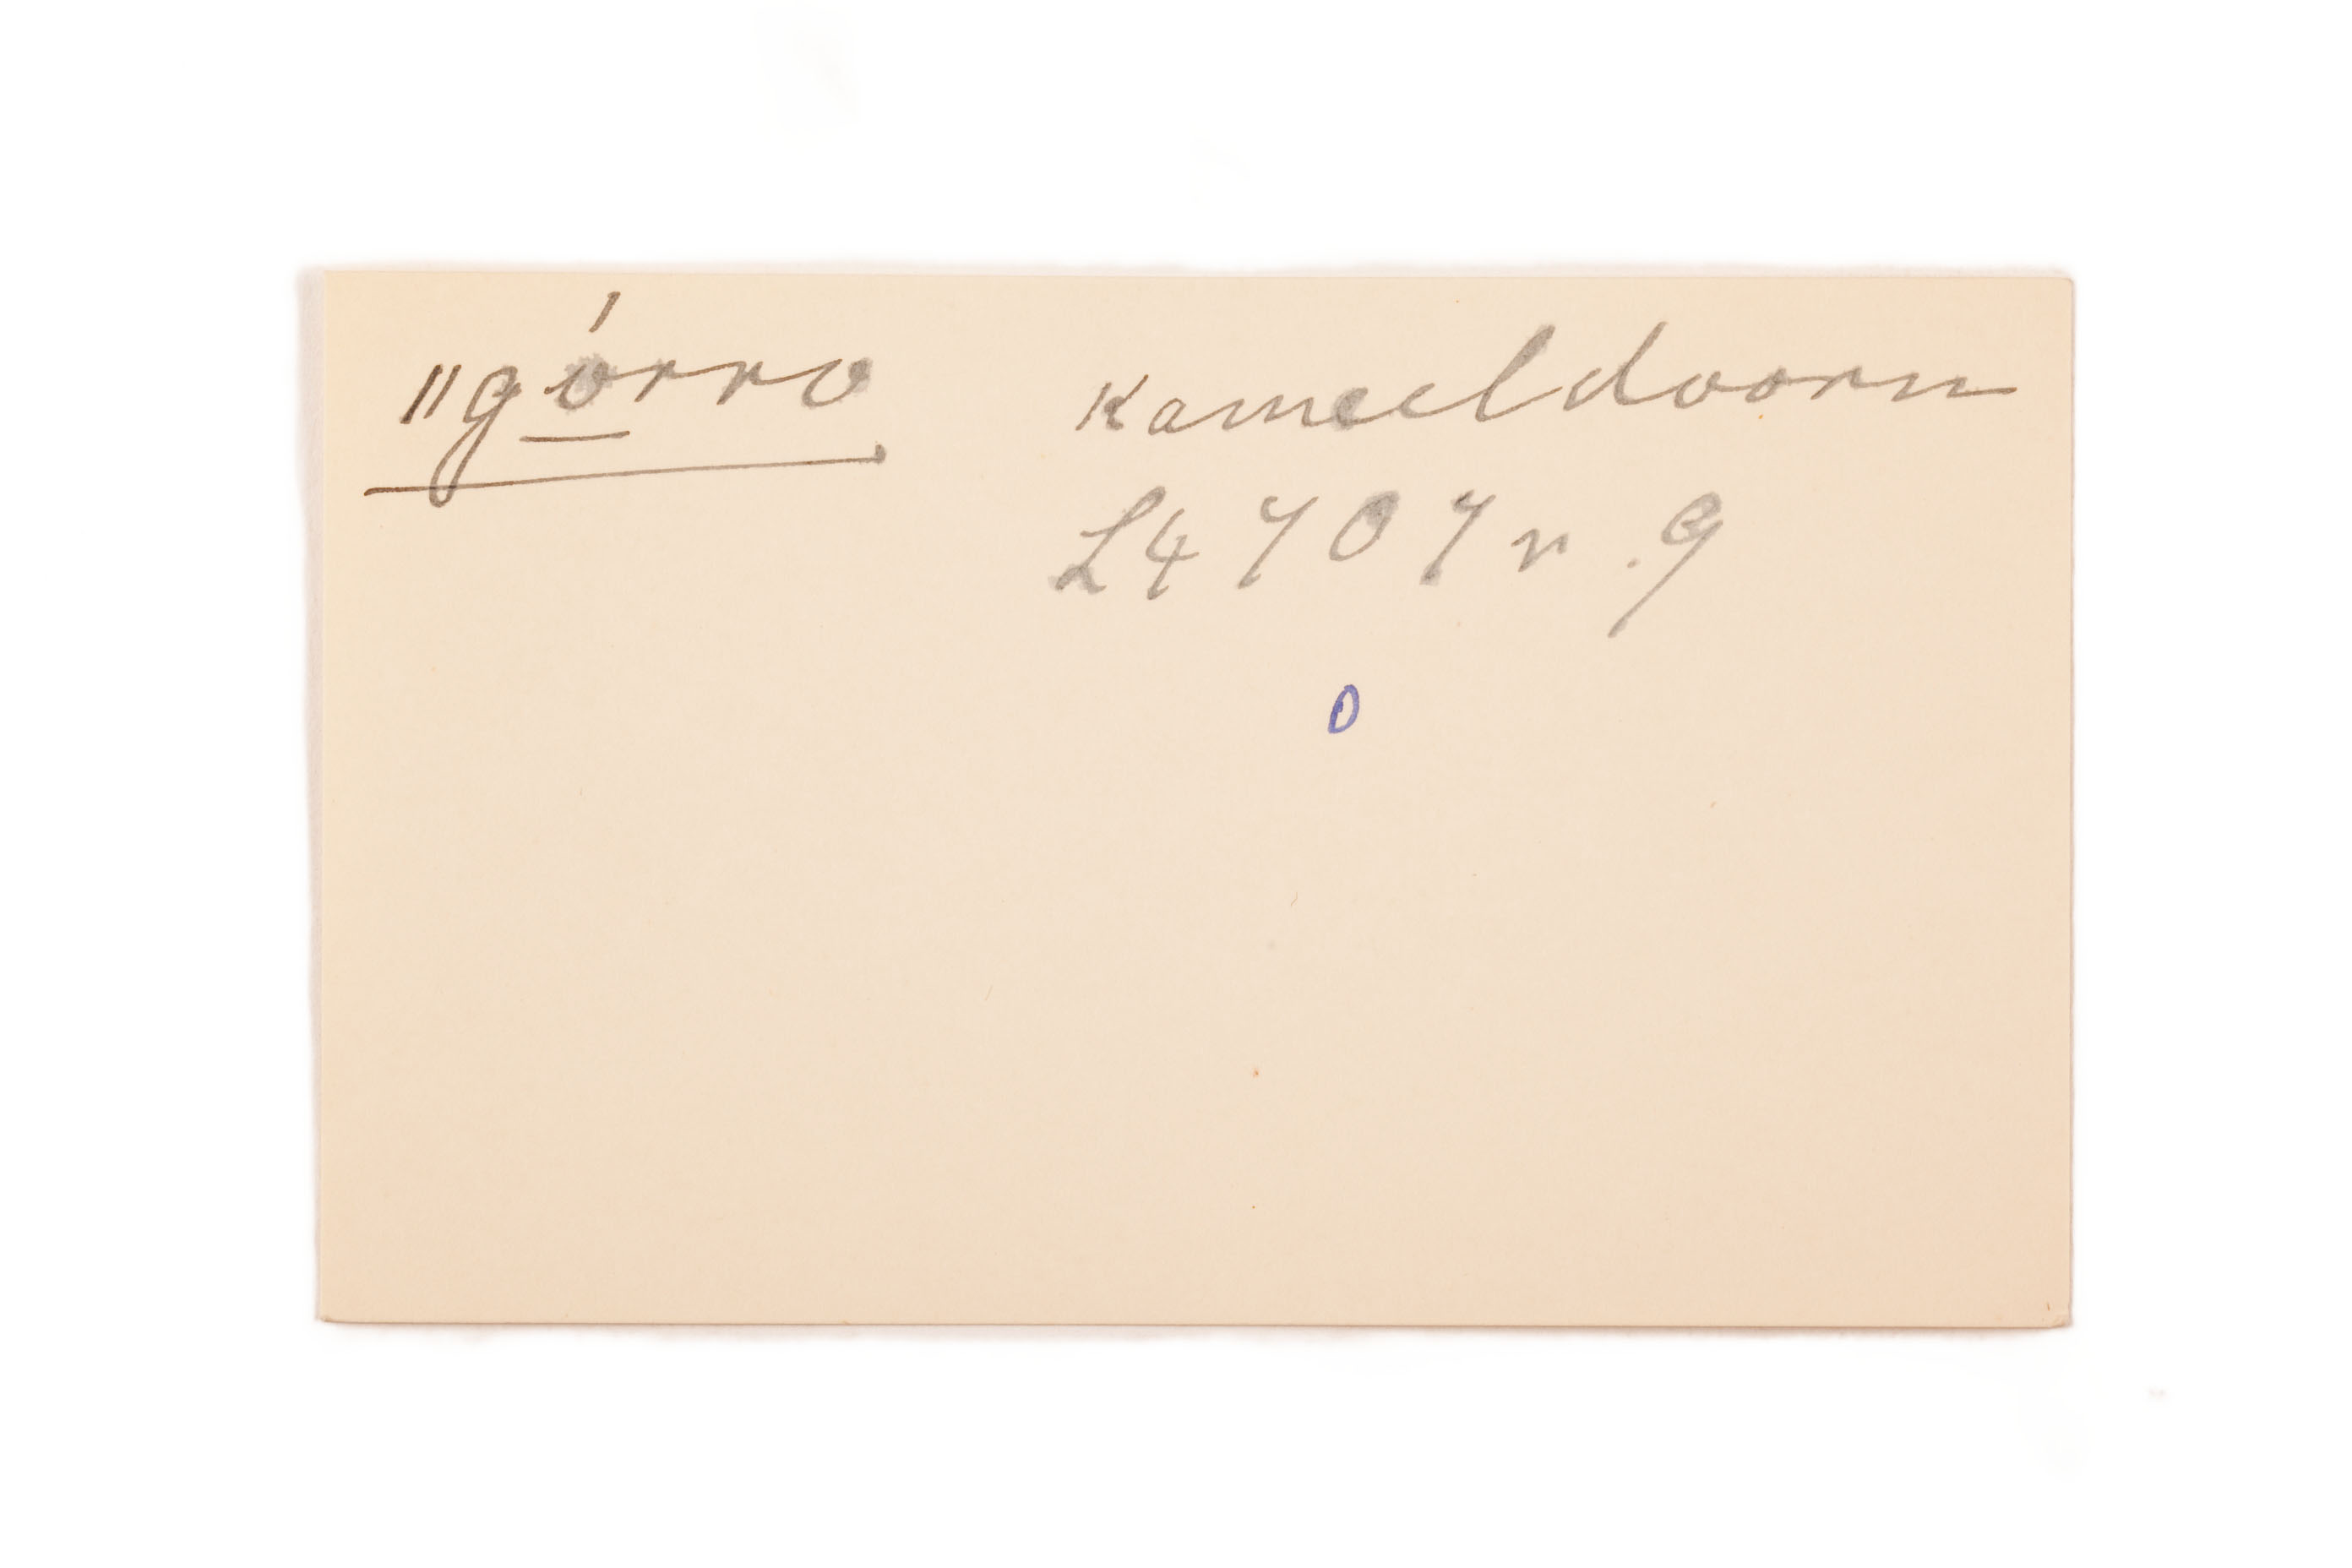 ǁgó̱rro Kameeldoorn
L4707r.9
0